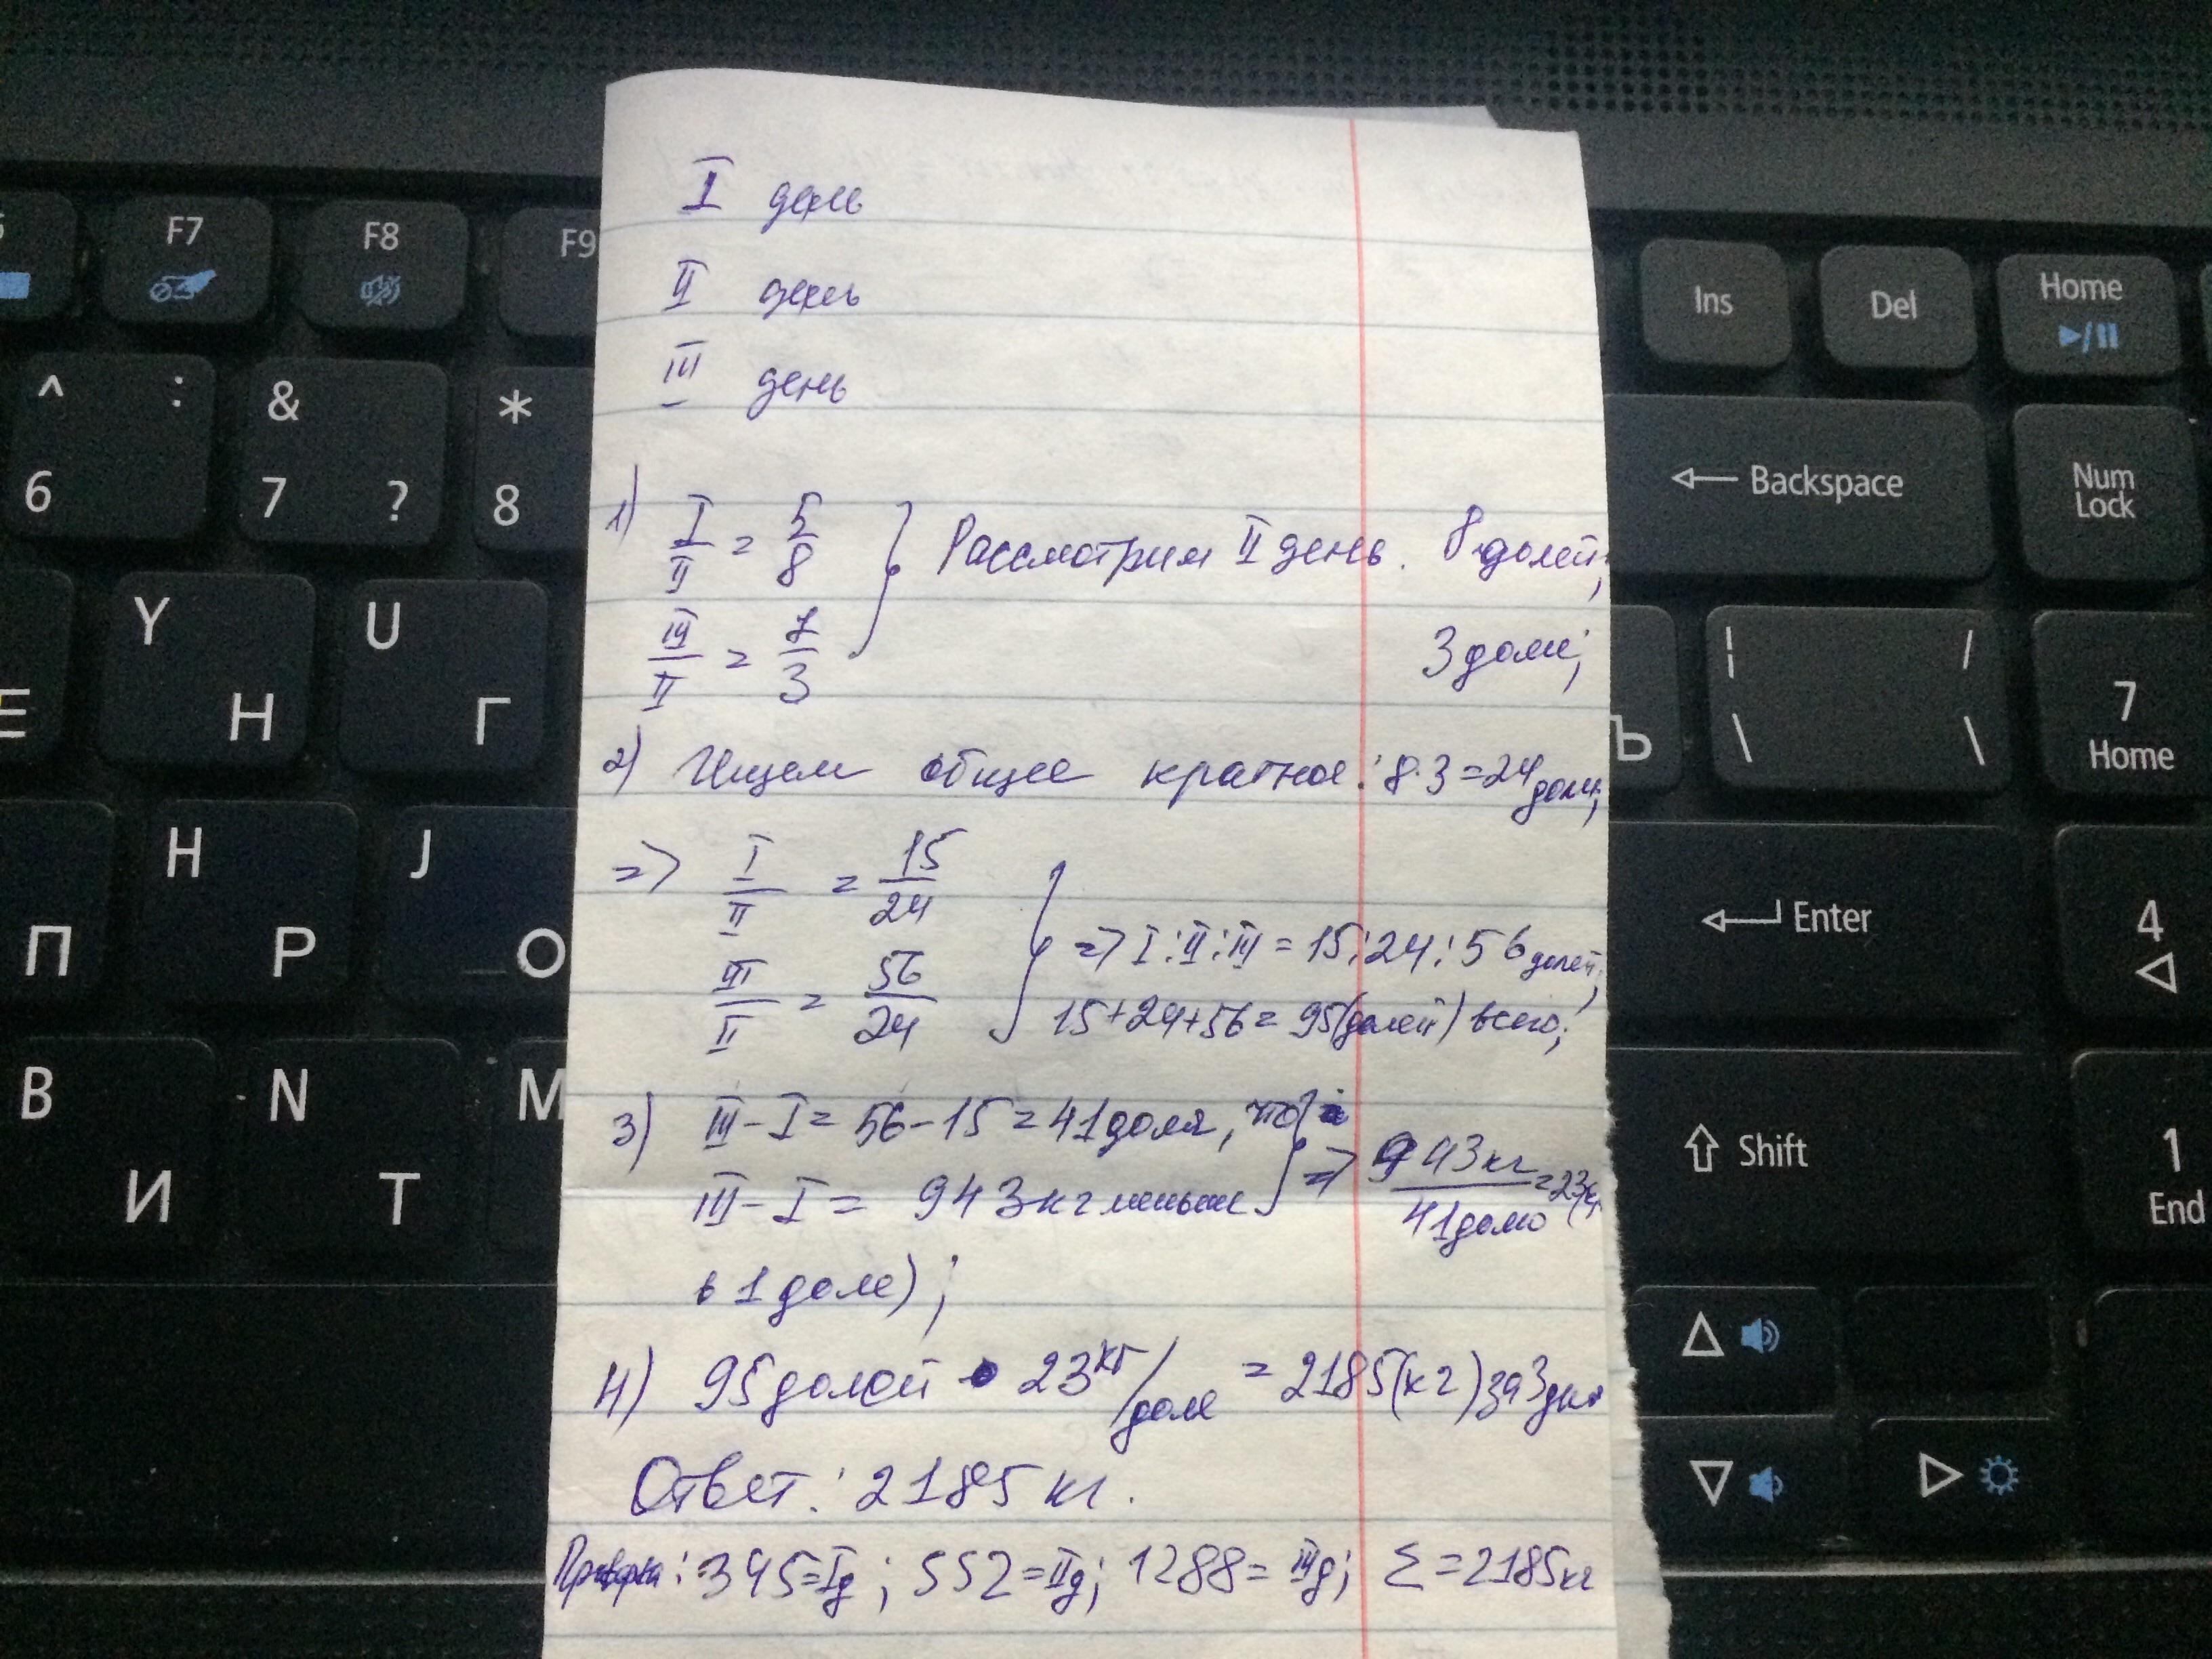 I день
II день
III день
1) I/II = 5/8 } Рассмотрим II день. 8 долей;
III/II = 7/3 3 доли;
2) Ищем общее кратное: 8·3=24 доли;
=> I/II = 15/24
III/II = 56/24 } => I:II:III = 15:24:56 долей;
15+24+56=95(долей) всего;
3) III-I=56-15=41доля, что
III-I= 943кг меньше } => 943кг/41долю =23кг(
в 1 доле);
4) 95долей • 23кг/доле =2185(кг)за 3дня
Ответ: 2185 кг.
Проверка: 345=Iд; 552=IIд; 1288=IIIд; Σ=2185кг
F7
F8
F9
Ins
Del
Home
^ :
6
& 
7 ?
*
8
Backspace
Num
Lock
Y
Н
U
Г
Е
Ъ
| /
\ \
7
Home
H
Р
J
О
П
Enter
4
B
И
N
Т
M
Shift
1
End